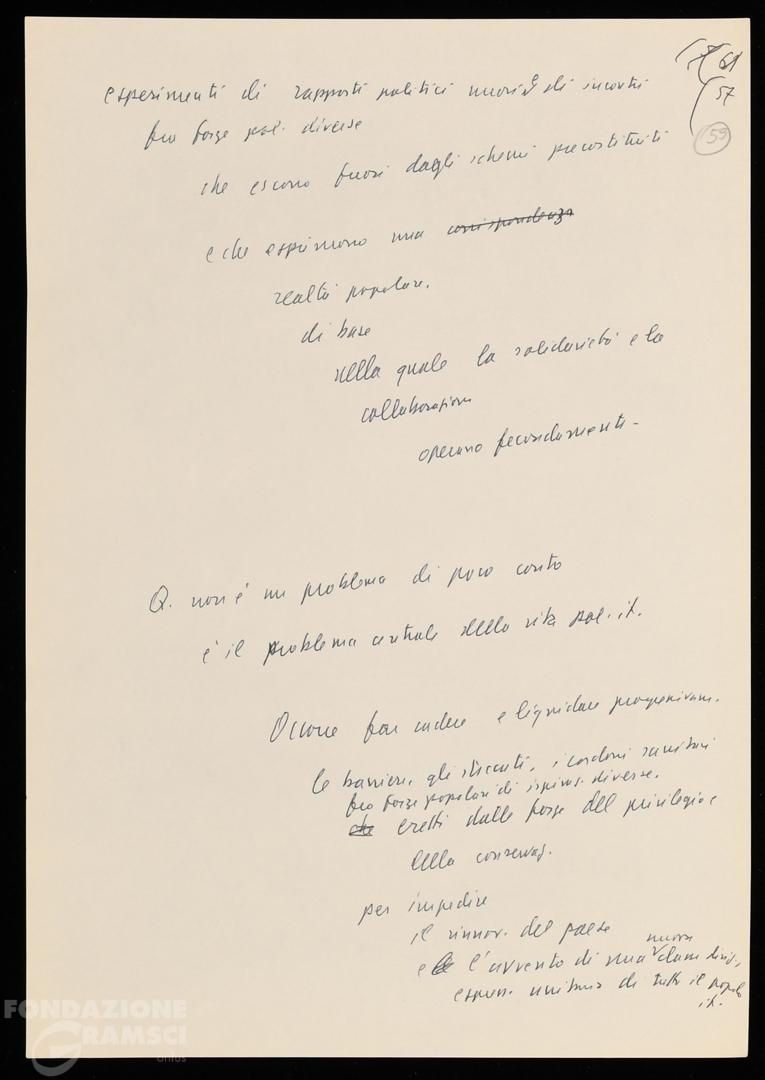 61
57
59
esperimenti di rapporti politici nuovi e di incontri
fra forze pol. diverse
che escono fuori dagli schemi precostituiti
e che esprimono una corrispondenza
realtà popolare.
di base
nella quale la solidarietà e la
collaborazione
operano fecondamente.
Q. non è un problema di poco conto
è il problema centrale della vita pol. it.
Occorre far cadere e liquidare progressivam.
le barriere, gli steccati, i cordoni sanitari
fra forze popolari di ispiraz. diverse.
che eretti dalle forze del privilegio e
della conservaz.
per impedire
il rinnov. del paese
e l'avvento di una nuova classe dirig.,
espress. unitaria di tutto il popolo
it.
FONDAZIONE
GRAMSCI
onlus